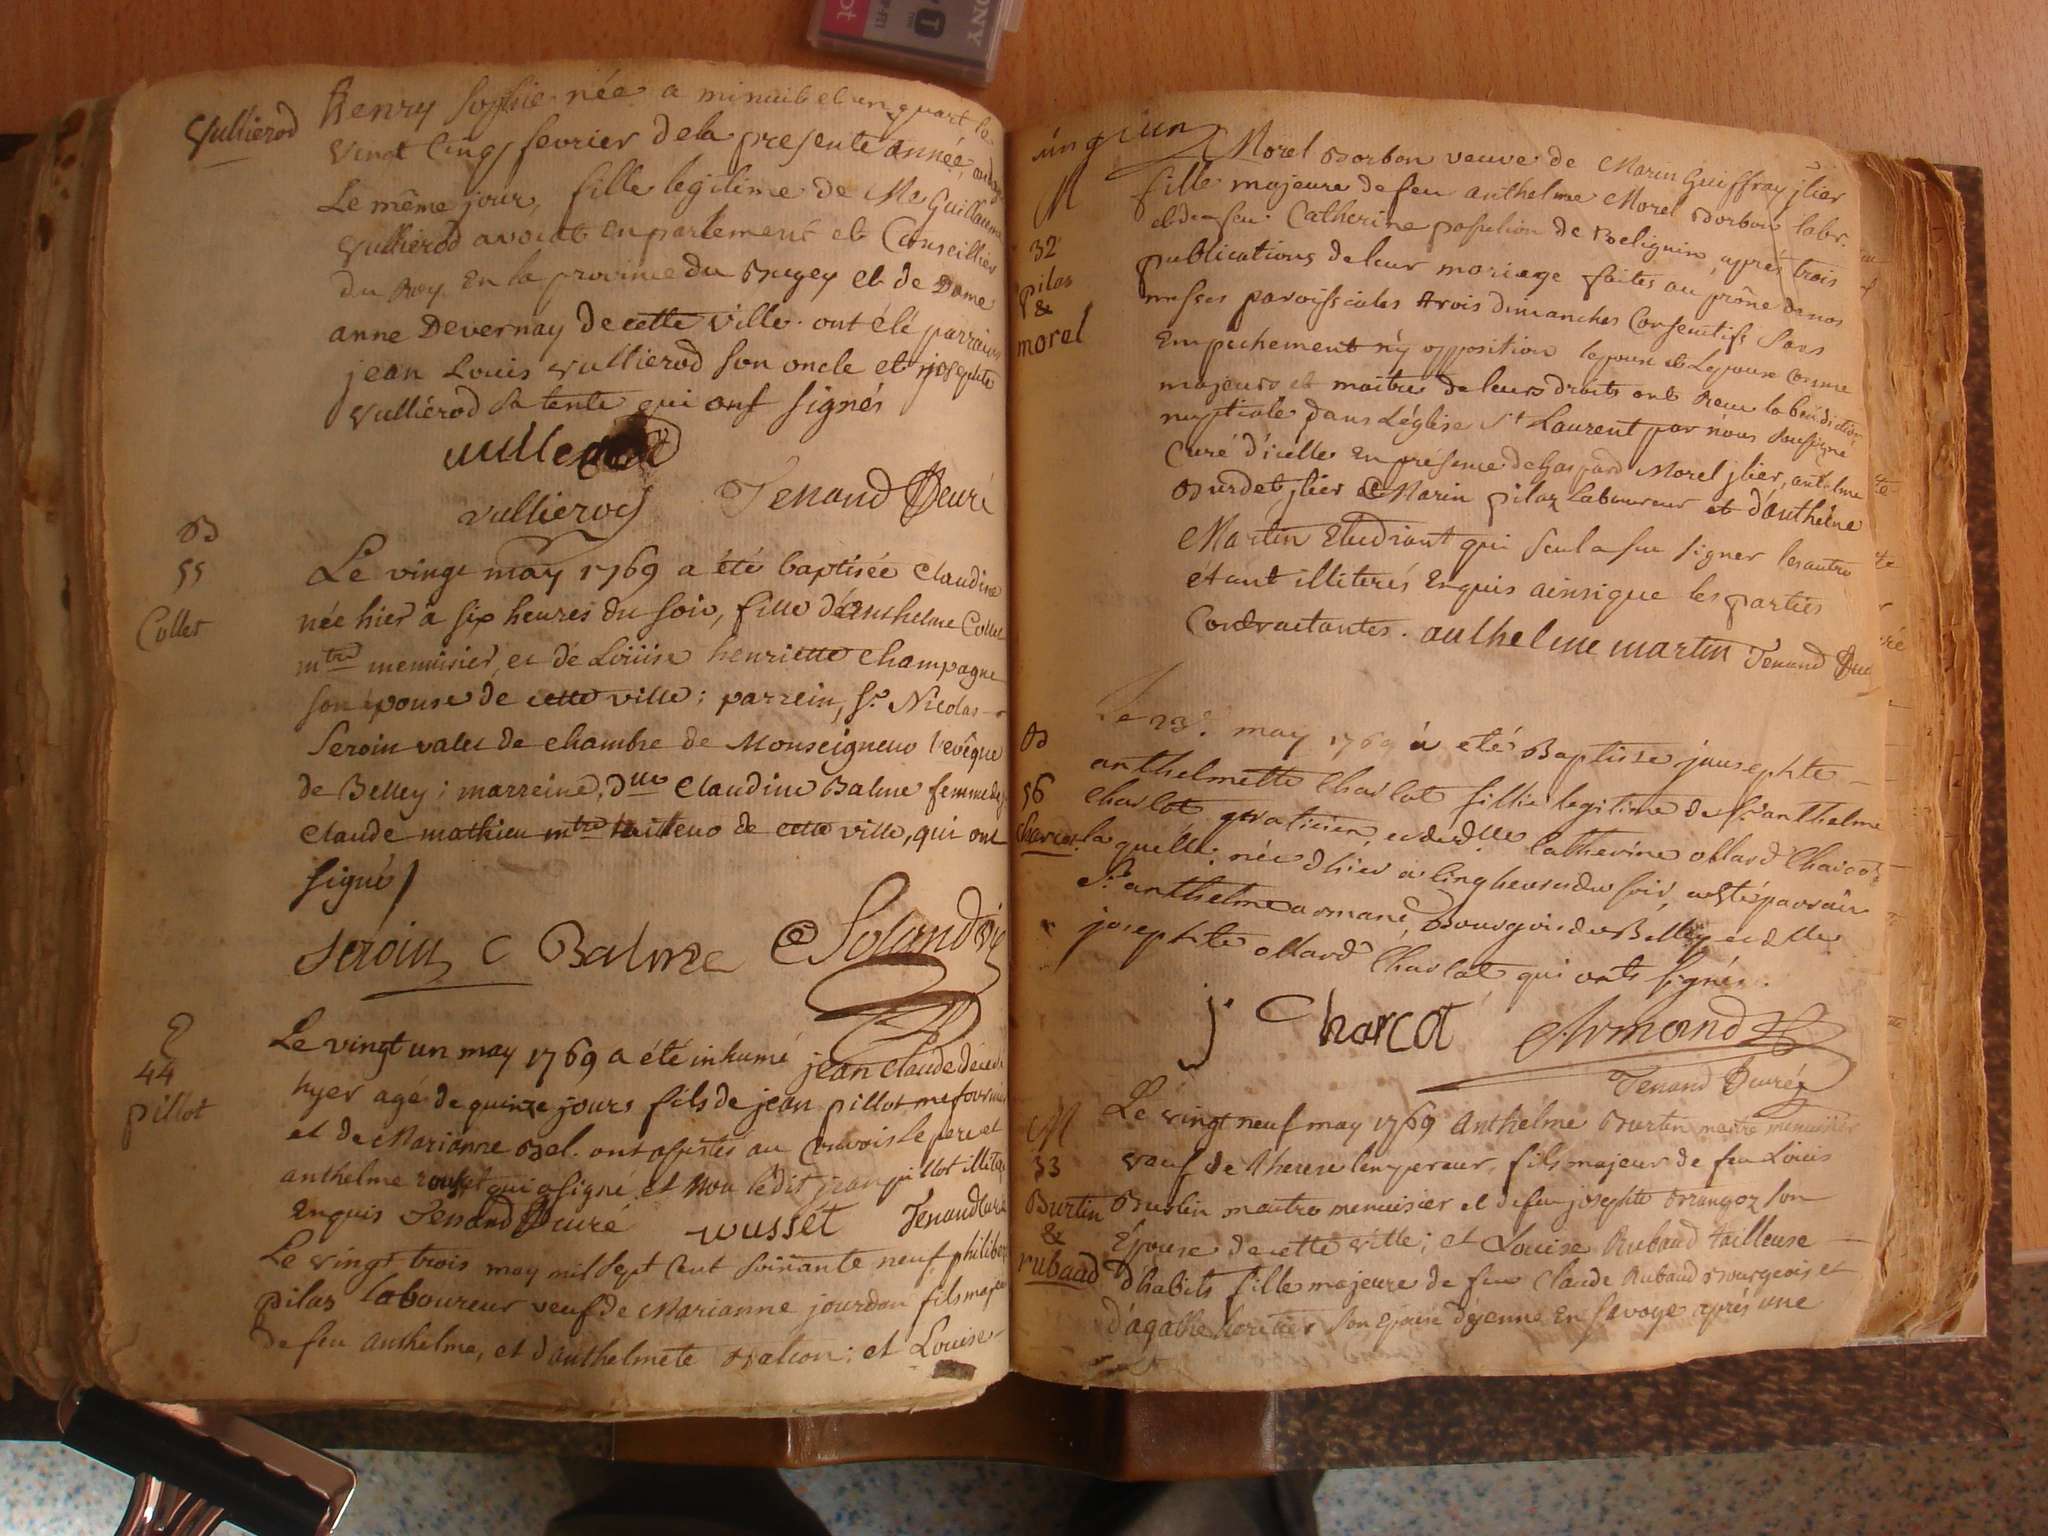 Vullierod
henry Sophie née a minuit et un quart le
vingt cinq fevrier de la presente année,
Le même jour, fille legitime de Me Guillaume
Vullierod avocat en parlement et Conseillier
du Roy en la province du Bugey et de Dame
anne Devernay de cette ville. ont été parrain
jean Louis Vullierod son oncle et josephte
Vulliérod sa tente qui ont signés
vullierod
Tenand Curé
B
55
Collet
Le vingt may 1769 a été baptisée Claudine
née hier à six heures du soir, fille d'Anthelme Collet
mtre menuisier, et de Loüise henriette Champagne
son épouse de cette ville; parrein, Sr. Nicolas
Seroin valet de chambre de Monseigneur l'evêque
de Belley; marreine, dlle Claudine Balme femme de
Claude mathieu mtre tailleur de cette ville, qui ont
signé
Seroin C Balme
E
44
pillot
Le vingt un may 1769 a été inhumé jean Claude décedé
hyer agé de quinze jours fils de jean pillot
et de Marianne Bel. ont assistés au Convois le pere et
anthelme qui a signé et non ledit jean pillot illiteré
Enquis Tenand Curé wussét Tenand Curé
Le vingt trois may mil sept cent soixante neuf, philibert
pilaz laboureur veuf de Marianne jourdan fils majeur
de feu anthelme, et d'anthelmete Balcon; et Louise
M
32
pilas
&
morel
Morel Borbon veuve de Marin Guiffray jlier
fille majeure de feu anthelme Morel Borbon labr.
et de feu Catherine de Beligniu, aprés trois
publications de leur mariage faites au prône de nos
messes paroissiales trois dimanches Consecutifs Sans
Empechement n'y opposition lepoux et Lepouse Comme
majeurs et maitres de leurs droits ont Recu la benediction
nuptiale dans L'église St Laurent par nous Soussigné
Curé d'icelle En présence de Gaspard Morel jlier, antelme
Burdet jlier et Marin pilaz Laboureur et d'anthelme
Martin Etudiant qui seul a su signer les autre
étant illiterés Enquis ainsi que les parties
Contractantes. anthelme martin Tenand Curé
B
56
Charcot
Le 23e. may 1769 a eté Baptisée jousephte
anthelmette Charcot fillie legitime de Sr. anthelme
Charcot praticien, et de dlle Catherine ollard Charcot
la quelle née d hier a cinq heures du soir, a esté parrain
Sr. anthelme armand, Bourgois de Belley et dlle
josephte ollard Charcot qui onts signés.
j Charcot Armand
Tenand Curé
M
33
Burtin
&
rubaud
Le vingt neuf may 1769 Anthelme Burtin maitre menuisier
veuf de therese lempereur, fils majeur de feu Louis
Burtin maitre menuisier et de feu josephte son
Épouse de cette ville; et Louise Rubaud tailleuse
d'habits fille majeure de feu Claude Rubaud Bourgeois et
d'agathe heritier son Epouse d'yenne En Savoye aprés une
SONY